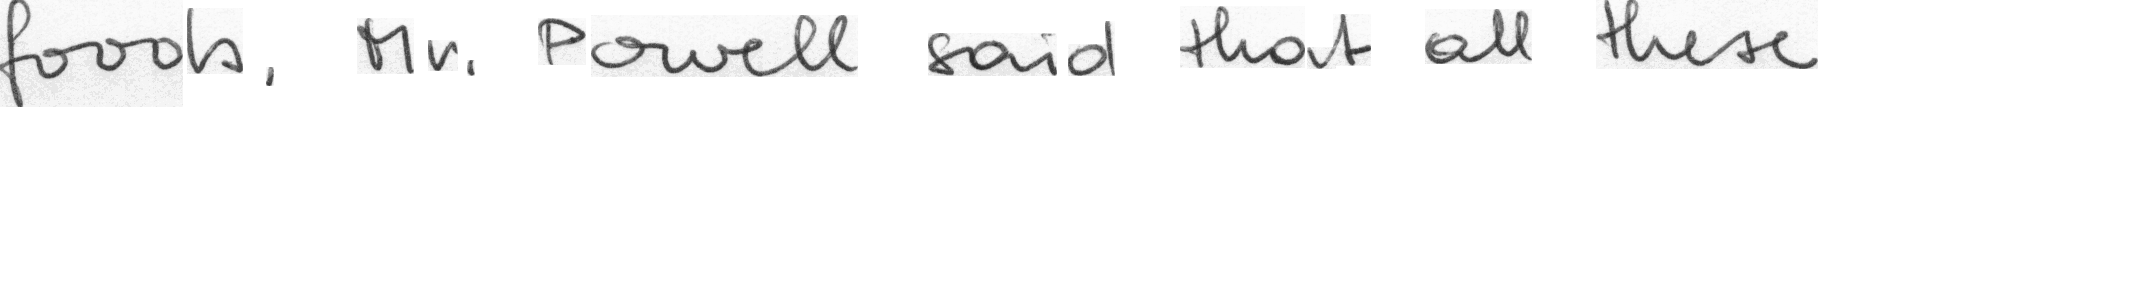 foods, Mr. Powell said that all these